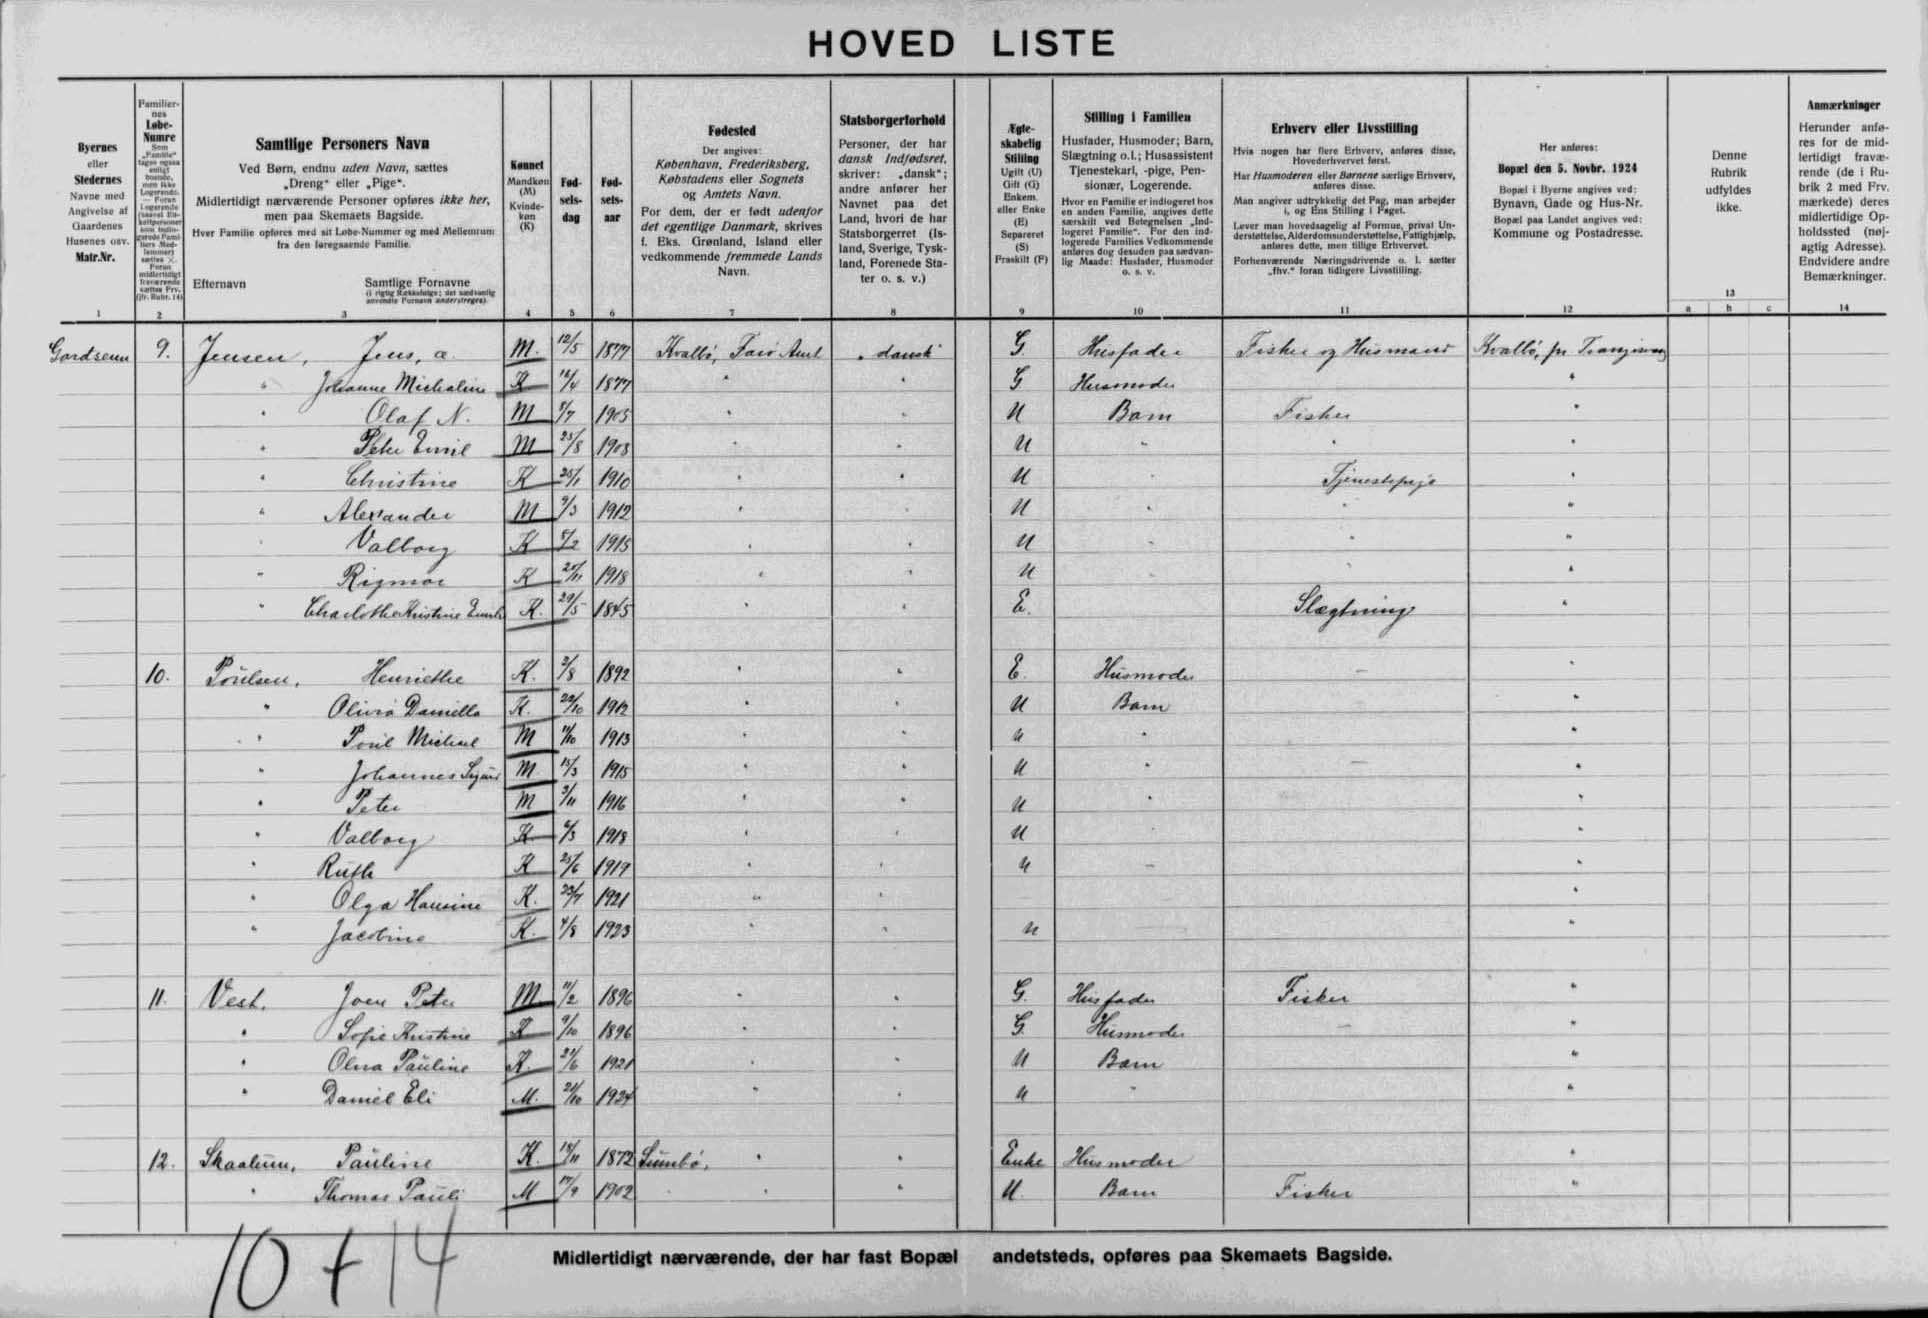 HOVED LISTE
Byernes
eller
Stedernes
Navne med
Angivelse af
Gaardenes
Husenes osv.
Matr.Nr.
1
Familier-
nes
Løbe-
Numre
2
Samtlige Personers Navn
Ved Børn, endnu uden Navn, sættes
„Dreng“ eller „Pige“.
Midlertidigt nærværende Personer opføres ikke her,
men paa Skemaets Bagside.
Hver Familie opføres med sit Løbe-Nummer og med Mellemrum
fra den foregaaende Familie.
Efternavn Samtlige Fornavne
(i rigtig Rækkefølge; det sædvanlig
anvendte Fornavn understreges).
3
Kønnet
Mandkøn
(M)
Kvinde-
køn
(K)
4
Fød-
sels-
dag
5
Fød-
sels-
aar
6
Fødested
Der angives:
København, Frederiksberg,
Købstadens eller Sognets
og Amtets Navn.
For dem, der er født udenfor
det egentlige Danmark, skrives
f. Eks. Grønland, Island eller
vedkommende fremmede Lands
Navn.
7
Statsborgerforhold
Personer, der har
dansk Indfødsret,
skriver: „dansk“;
andre anfører her
Navnet paa det
Land, hvori de har
Statsborgerret (Is-
land, Sverige, Tysk-
land, Forenede Sta-
ter o. s. v.)
8
Ægte-
skabelig
Stilling
Ugift (U)
Gift (G)
Enkem.
eller Enke
(E)
Separeret
(S)
Fraskilt (F)
9
Stilling i Familien
Husfader, Husmoder; Barn,
Slægtning o.l.; Husassistent
Tjenestekarl, -pige, Pen-
sionær, Logerende.
Hvor en Familie er indlogeret hos
en anden Familie, angives dette
særskilt ved Betegnelsen „Ind-
logeret Familie“. For den ind-
logerede Families Vedkommende
anføres dog desuden paa sædvan-
lig Maade: Husfader, Husmoder
o. s. v.
10
Erhverv eller Livsstilling
Hvis nogen har flere Erhverv, anføres disse,
Hovederhvervet først.
Har Husmoderen eller Børnene særlige Erhverv,
anføres disse.
Man angiver udtrykkelig det Fag, man arbejder
i, og Ens Stilling i Faget.
Lever man hovedsagelig af Formue, privat Un-
derstøttelse, Alderdomsunderstøttelse, Fattighjælp,
anføres dette, men tillige Erhvervet.
Forhenværende Næringsdrivende o. l. sætter
„fhv.“ foran tidligere Livsstilling.
11
Her anføres:
Bopæl den 5. Novbr. 1924
Bopæl i Byerne angives ved:
Bynavn, Gade og Hus-Nr.
Bopæl paa Landet angives ved:
Kommune og Postadresse.
12
Denne
Rubrik
udfyldes
ikke.
13
a b c
Anmærkninger
Herunder anfø-
res for de mid-
lertidigt fravæ-
rende (de i Ru-
brik 2 med Frv.
mærkede) deres
midlertidige Op-
holdssted (nøj-
agtig Adresse).
Endvidere andre
Bemærkninger.
14
9. Jensen, Jens, a. M. 12/5 1877 Kvalbø, Farø Amt dansk G. Husfader Fisker og Husmand Kvalbø, pr
" Johanne Michaline K 1877 " " G Husmoder "
" Olaf N. M 1905 " " U Barn Fisker "
" Peter Emil M 25/8 1908 " " U " " "
" Christine K 1910 " " U " Tjenestepige "
" Alexander M 1912 " " U " " "
" Valborg K 1915 " " U " " "
" Rigmor K 1918 " " U " " "
" Charlotte Kristine K. 29/5 1845 " " E. Slægtning "
10. Poulsen, Henriette K. 1892 " " E. Husmoder – "
" Olivia Daniella K. 29/10 1912 " " U Barn "
" Poul Michael M 1913 " " U " "
" Johannes M. 15/3 1915 " " U " "
" Peter M 3/11 1916 " " U " "
" Valborg K 1918 " " U "
" Ruth K 25/6 1919 " " U – "
" Olga Hansine K. 23/7 1921 " " "
" Jacobine K. 4/8 1923 " " U "
11. Vest. Joen Peter M 11/2 1896 " " G. Husfader Fisker "
" Sofie Kristine K 9/10 1896 " " G. Husmoder – "
" Olna Pauline K. 1921 " " U Barn "
" Daniel Eli M. 21/10 1924 " " U " "
12. Skaalum, Pauline K. 14/11 1872 Sumbø, " " Enke Husmoder "
" Thomas Pauli M 1902 " " U. Barn Fisker "
10 + 14
Midlertidigt nærværende, der har fast Bopæl andetsteds, opføres paa Skemaets Bagside.